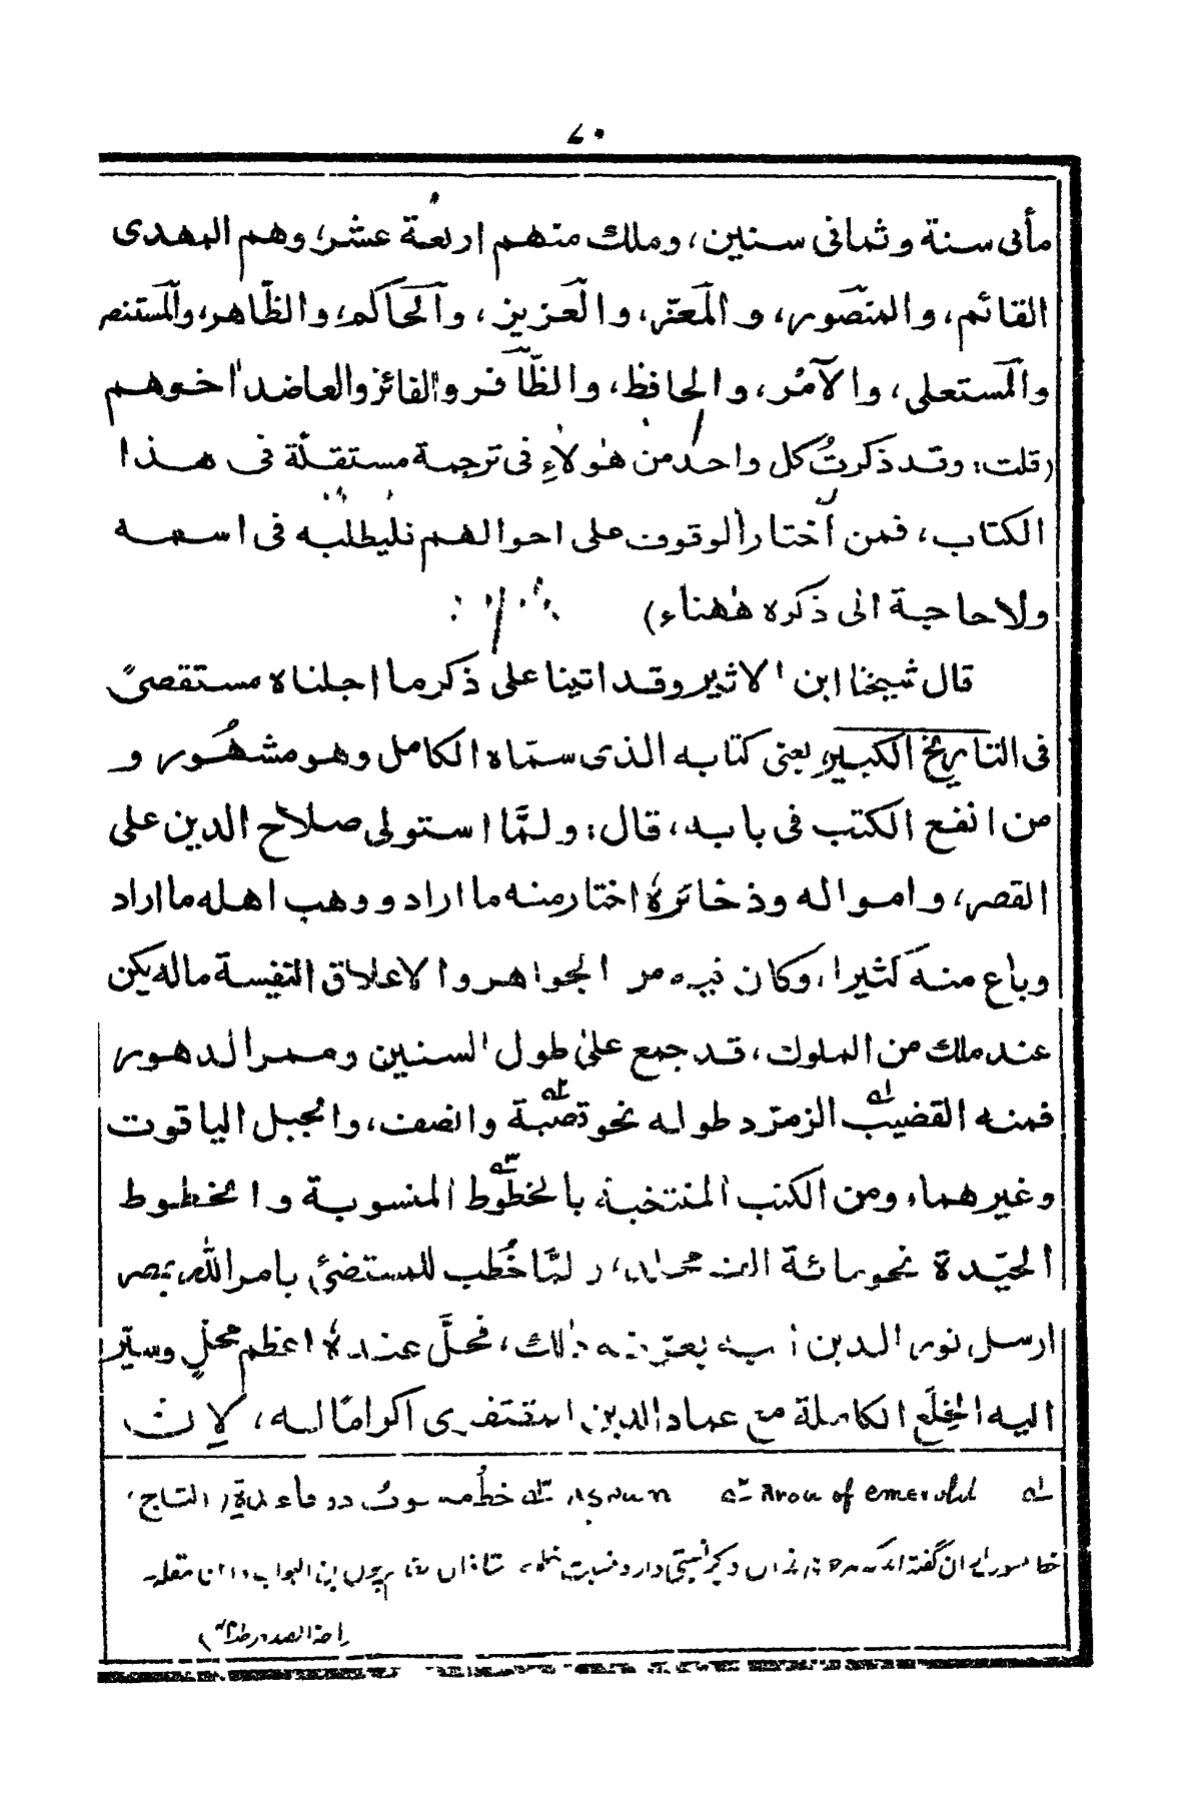 ٧٠
مأتى سنة وثمانى سنين، وملك منهم اربعة عشر، وهم المهدى
القائم، والمنصور، والمعز، والعزيز، والحاكم، والظاهر، والمستنصر
والمستعلى، والآمر، والحافظ، والظافر والفائز والعاضد اخوهم
(قلت: وقد ذكرتُ كل واحد من هؤلاء فى ترجمة مستقلّة فى هذا
الكتاب، فمن اختار الوقوف على احوالهم فليطلبه فى اسمه
ولا حاجة الى ذكره ههناء)
قال شيخنا ابن الاثير وقد اتينا على ذكر ما اجلناه مستقصىً
فى التاريخ الكبير، يعنى كتابه الذى سمّاه الكامل وهو مشهُور و
من انفع الكتب فى بابه، قال: ولمّا استولى صلاح الدين على
القصر، وامواله وذخائرهٗ اختار منه ما اراد ووهب اهله ما اراد
وباع منه كثيرا، وكان فيه من الجواهر والاعلاق النفيسة ماله يكن
عند ملك من الملوك، قد جمع على طول السنين وممر الدهور
فمنه القضيب الزمرّد طوله نحو قصبة وانصف، والجبل الياقوت
وغيرهما، ومن الكتب المنتخبة بالخطوط المنسوبة والخطوط
الجيّدة نحو مائة الف مجلد، ولمّا خُطب للمستضئ بامر الله بمصر
ارسل نور الدين اليه يعرّفه ذلك، فحلَّ عندهٗ اعظم محلٍ وسيّر
اليه الخِلَع الكاملة مع عماد الدين المقتفوى اكرامًا له، لان
Arou of emerald
خط منسوب
راحة الصدور